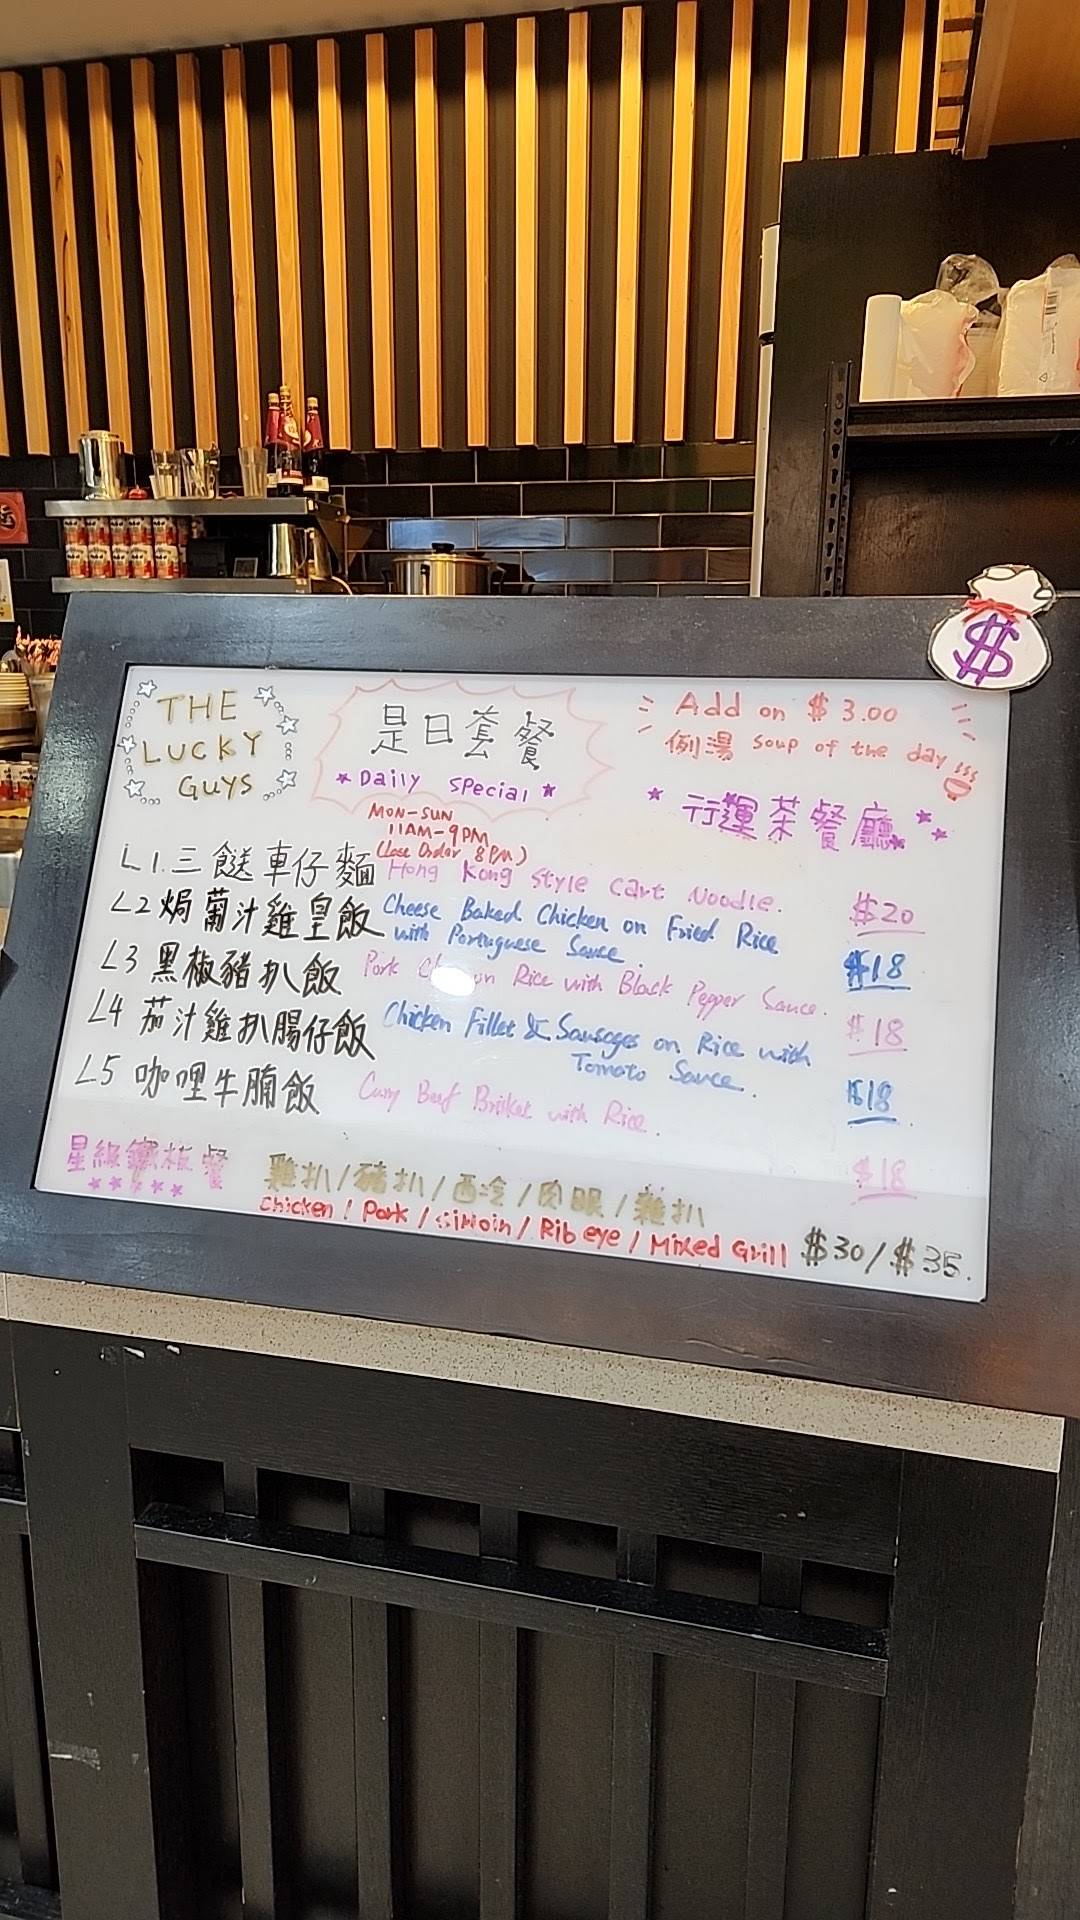 THE
LUCKY
GUYS
是日套餐
* Daily Special *
MON-SUN
11AM-9PM
(Last Order 8PM)
Add on $3.00
例湯 Soup of the day
* 行運茶餐廳 * *
L1. 三餸車仔麵 Hong Kong Style Cart Noodle. $20
L2 焗葡汁雞皇飯 Cheese Baked Chicken on Fried Rice
with Portuguese Sauce. $18
L3 黑椒豬扒飯 Pork on Rice with Black Pepper Sauce. $18
L4 茄汁雞扒腸仔飯 Chicken Fillet & Sausages on Rice with
Tomato Sauce. $18
L5 咖哩牛腩飯 Curry Beef Brisket with Rice. $18
星級鐵板餐
* * * * *
雞扒/豬扒/西冷/肉眼/雜扒
Chicken / Pork / Sirloin / Rib eye / Mixed Grill $30/$35.
$